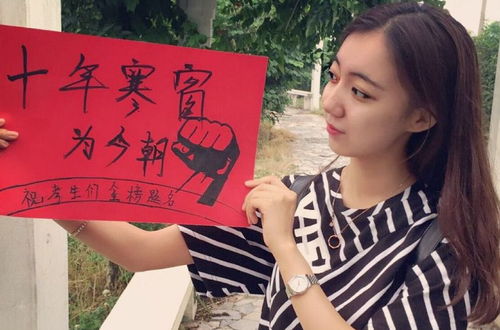 十年寒窗
为今朝
祝考生们 金榜题名